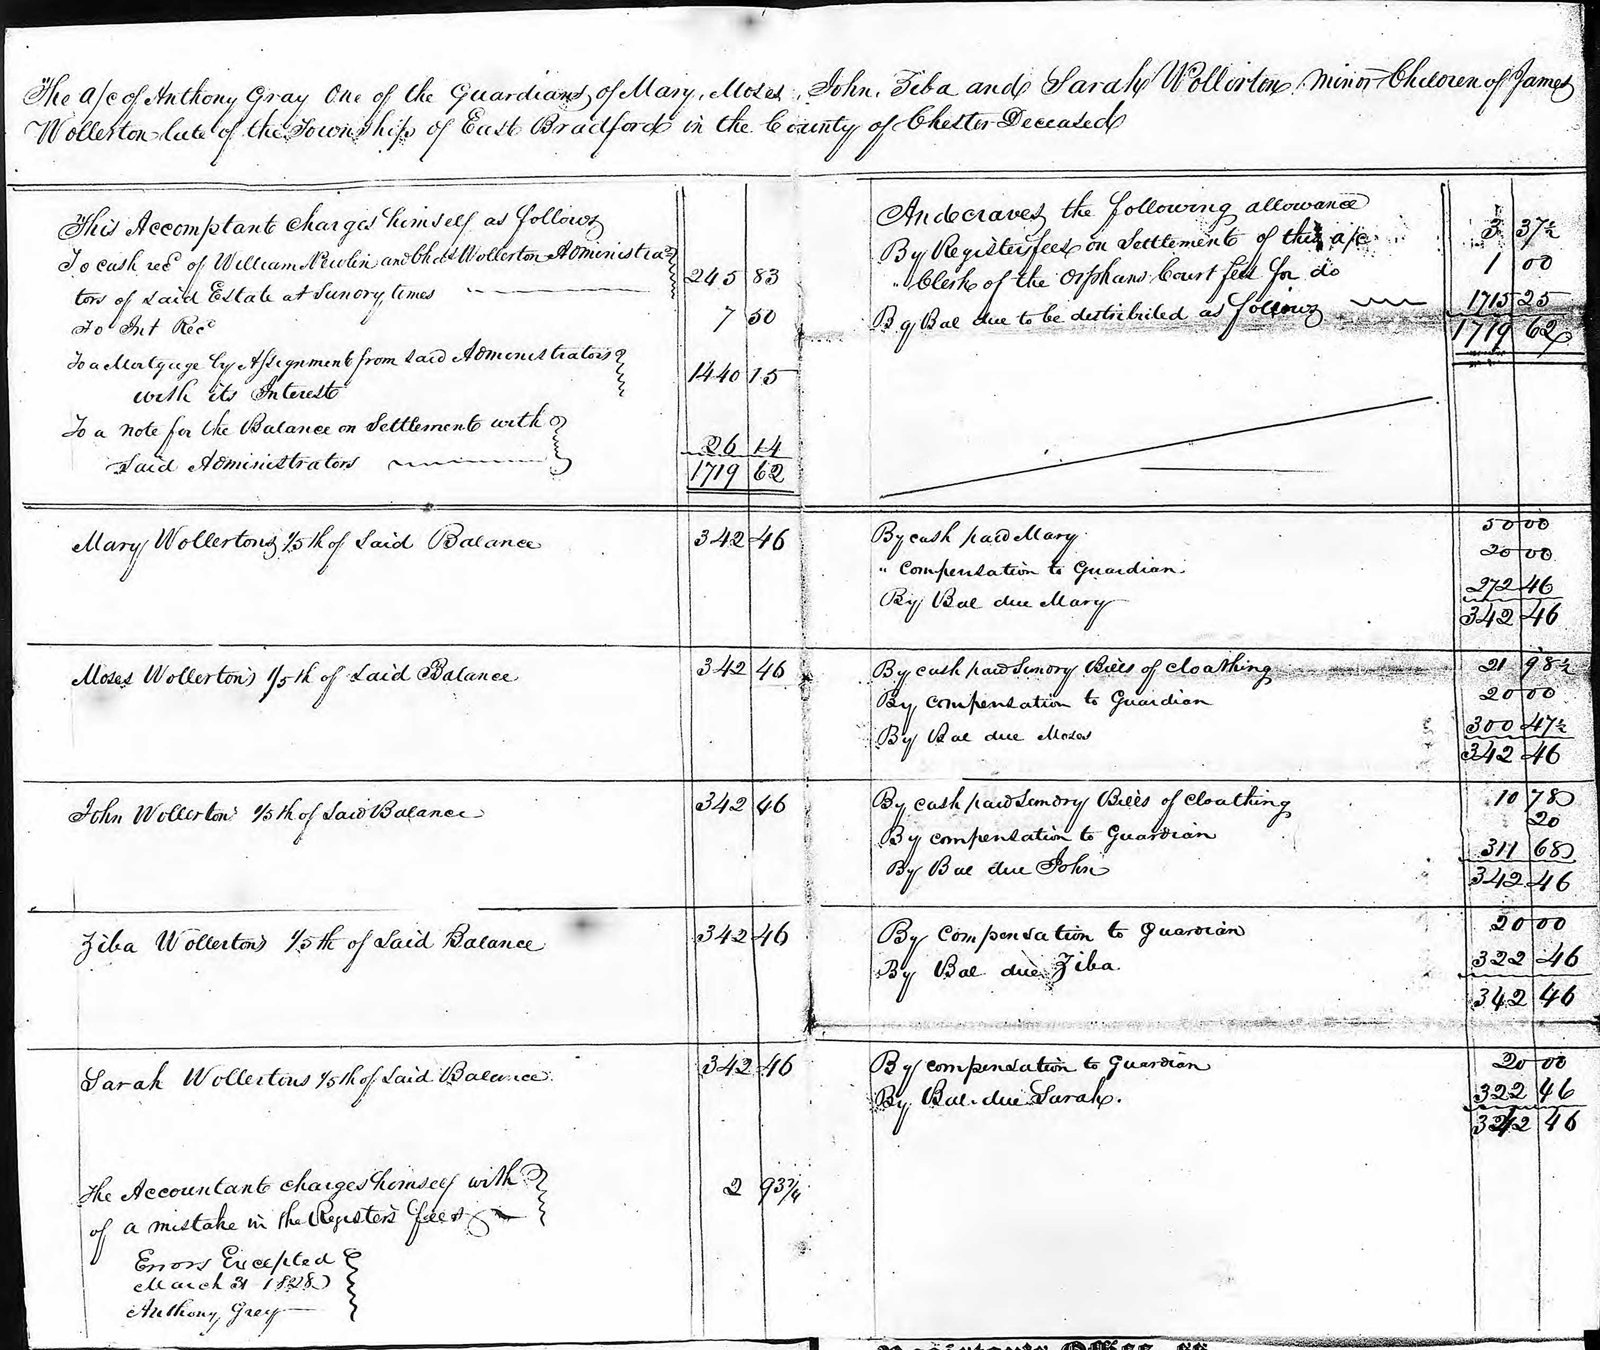 The a/c of Anthony Gray One of the Guardians of Mary, Moses, John, Ziba and Sarah Wollerton minor Children of James
Wollerton late of the Township of East Bradford in the County of Chester Deceased
This Accomptant charges himself as follows
To cash recd of William Newlin and Chas Wollerton Administra
tors of said Estate at Sundry times 245 83
To Int Recd 7 50
To a Mortgage by Assignment from said Administrators
with its Interest 1440 15
To a note for the Balance on Settlement with
Said Administrators 26 14
1719 62
And craves the following allowance
By Registers fees on Settlement of this a/c 3 37½
" Clerk of the Orphans Court fees for do 1 00
By Bal due to be distributed as follows 1715 25
1719 62
Mary Wollertons 1/5th of Said Balance 342 46
By cash paid Mary 50 00
" Compensation to Guardian 20 00
By Bal due Mary 272 46
342 46
Moses Wollertons 1/5th of Said Balance 342 46
By cash paid Sundry Bills of cloathing 21 98½
By compensation to Guardian 20 00
By Bal due Moses 300 47½
342 46
John Wollertons 1/5th of Said Balance 342 46
By cash paid Sundry Bills of cloathing 10 78
By compensation to Guardian 20
By Bal due John 311 68
342 46
Ziba Wollertons 1/5th of Said Balance 342 46
By Compensation to Guardian 20 00
By Bal due Ziba 322 46
342 46
Sarah Wollertons 1/5th of Said Balance 342 46
By compensation to Guardian 20 00
By Bal due Sarah. 322 46
342 46
The Accountant charges himself with
of a mistake in the Registers fees 2 93¾
Errors Excepted
March 31 1828
Anthony Gray